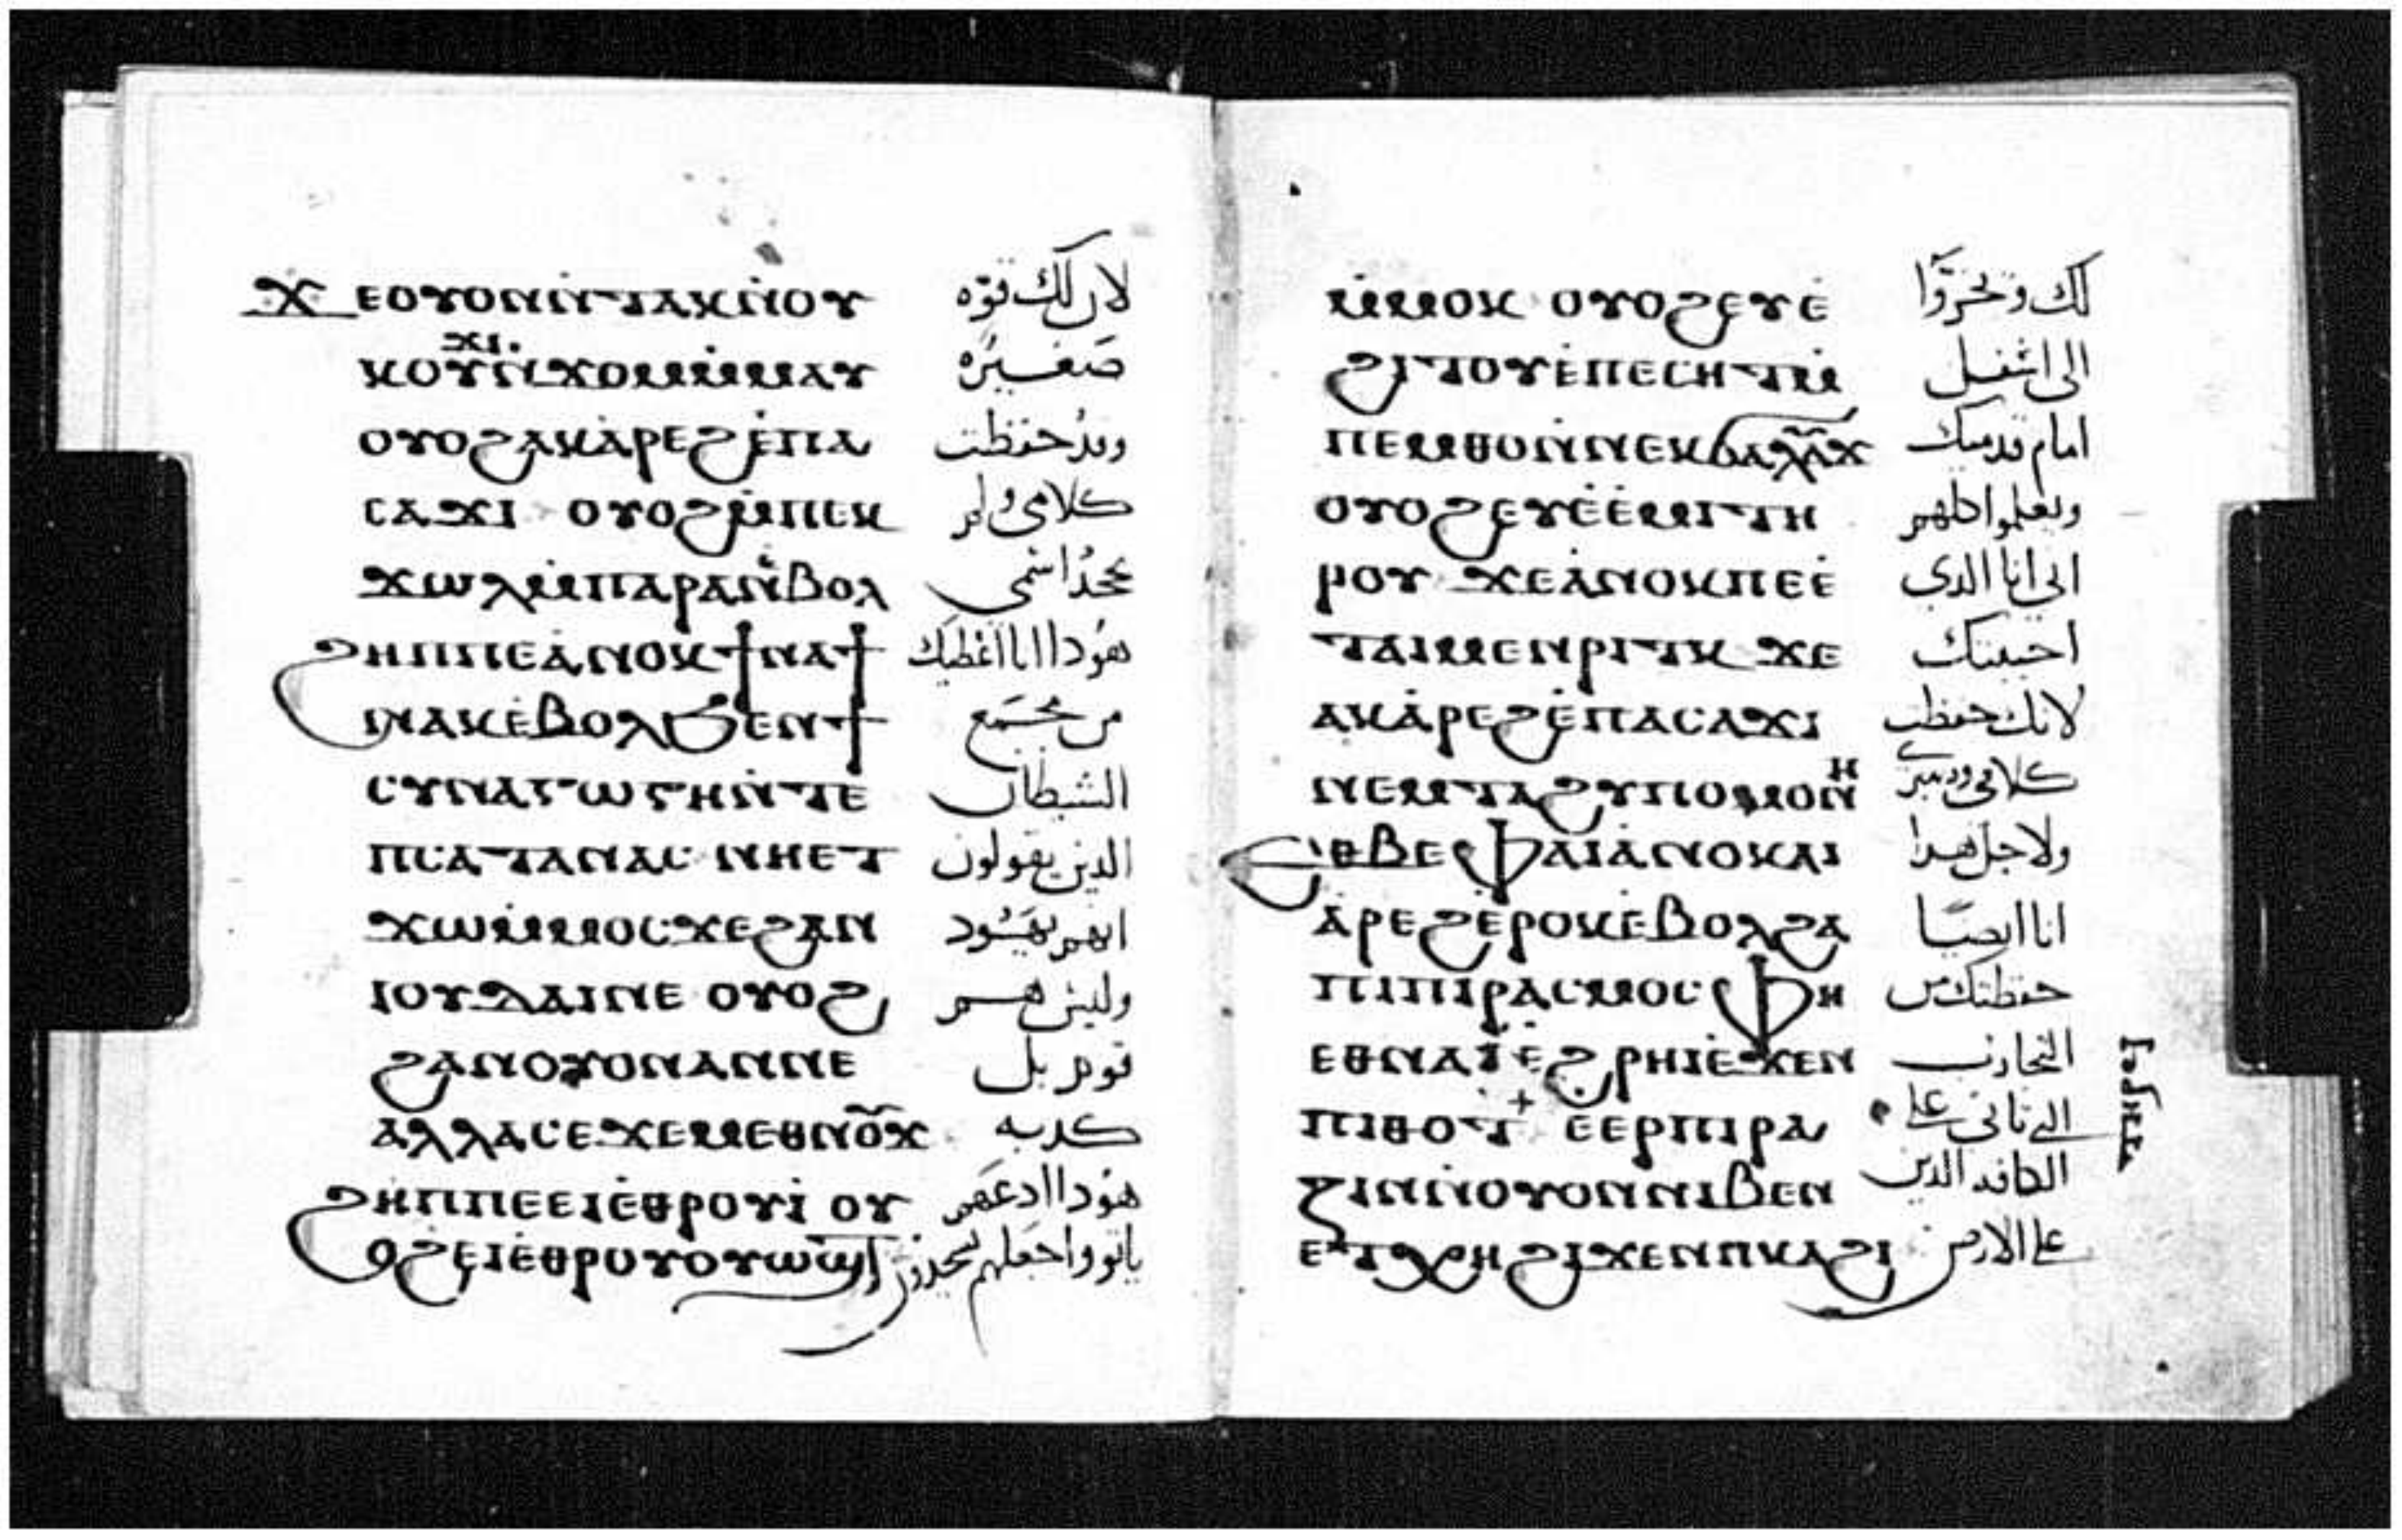 ϫⲉⲟⲩⲟⲛⲛ̀ⲧⲁⲕⲛ̀ⲟⲩ لان لك قوه
ⲕⲟⲩϫⲓⲛ̀ϫⲟⲙⲙ̀ⲙⲁⲩ صغيره
ⲟⲩⲟϩⲁⲕⲁ̀ⲣⲉϩⲉ̀ⲡⲁ وقد حفظت
ⲥⲁϫⲓ ⲟⲩⲟϩⲙ̀ⲡⲉⲕ كلامى ولم
ϫⲱⲗⲙ̀ⲡⲁⲣⲁⲛⲉ̀ⲃⲟⲗ تجحد اسمى
ϩⲏⲡⲡⲉⲁ̀ⲛⲟⲕϯⲛⲁϯ هودا انا اعطيك
ⲛⲁⲕⲉ̀ⲃⲟⲗϧⲉⲛϯ من مجمع
ⲥⲩⲛⲁⲅⲱⲅⲏⲛ̀ⲧⲉ الشيطان
ⲡⲥⲁⲧⲁⲛⲁⲥ ⲛⲏⲉⲧ الدين يقولون
ϫⲱⲙ̀ⲙⲟⲥϫⲉϩⲁⲛ انهم يهود
ⲓⲟⲩⲇⲁⲓⲛⲉ ⲟⲩⲟϩ وليس هم
ϩⲁⲛⲟⲩⲟⲛⲁⲛⲛⲉ قوم بل
ⲁⲗⲗⲁⲥⲉϫⲉⲙⲉⲑⲛⲟⲩϫ كدبه
ϩⲏⲡⲡⲉⲉⲓⲉ̀ⲑⲣⲟⲩⲓ̀ ⲟⲩ هودا ادعهم
ⲟϩⲉⲓⲉ̀ⲑⲣⲟⲩⲟⲩⲱϣⲧ ياتوا واجعلهم يسجدون
ⲙ̀ⲙⲟⲕ ⲟⲩⲟϩⲉⲩⲉ̀ لك ويخروا
ϩⲓⲧⲟⲩⲉ̀ⲡⲉⲥⲏⲧⲙ̀ الى اسفل
ⲡⲉⲙⲑⲟⲛ̀ⲛⲉⲕϭⲁⲗⲁⲩϫ امام قدميك
ⲟⲩⲟϩⲉⲩⲉ̀ⲉ̀ⲙⲓⲧⲏ ويعلموا كلهم
ⲣⲟⲩ ϫⲉⲁ̀ⲛⲟⲕⲡⲉⲉ̀ انى انا الدى
ⲧⲁⲓⲙⲉⲛⲣⲓⲧⲕ ϫⲉ احببتك
ⲁⲕⲁ̀ⲣⲉϩⲉ̀ⲡⲁⲥⲁϫⲓ لانك حفظت
ⲛⲉⲙⲧⲁϩⲩⲡⲟⲙⲟⲛⲏ كلامى وصبرى
ⲉⲑⲃⲉⲫⲁⲓⲁ̀ⲛⲟⲕⲁⲓ ولاجل هدا
ⲁ̀ⲣⲉϩⲉ̀ⲣⲟⲕⲉ̀ⲃⲟⲗϩⲁ انا ايضا
ⲡⲓⲡⲓⲣⲁⲥⲙⲟⲥ ⲫⲏ حفظتك من
ⲉⲑⲛⲁⲓ̀ⲉ̀ϩⲣⲏⲓⲉ̀ϫⲉⲛ التجارب
ⲡⲓⲑⲟϯ ⲉ̀ⲉⲣⲡⲓⲣⲁ التى تاتى على
ⲍⲓⲛⲛ̀ⲟⲩⲟⲛⲛⲓⲃⲉⲛ الكافه الدين
ⲉⲧⲭⲏϩⲓϫⲉⲛⲡⲕⲁϩⲓ على الارض